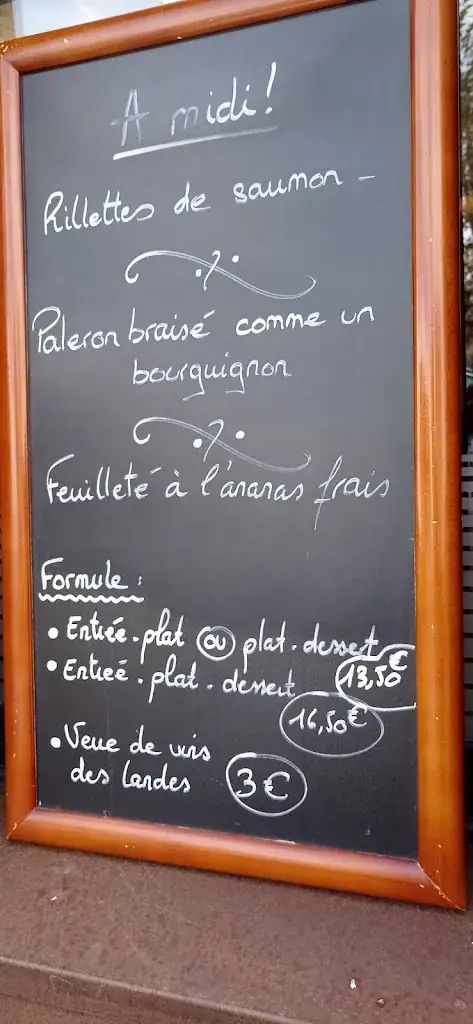 A midi!
Rillettes de saumon -
Paleron braisé comme un
bourguignon
Feuilleté à l'ananas frais
Formule :
• Entrée. plat ou plat. dessert
13,50€
• Entreé. plat. dessert
16,50€
• Verre de vins
des Landes 3€